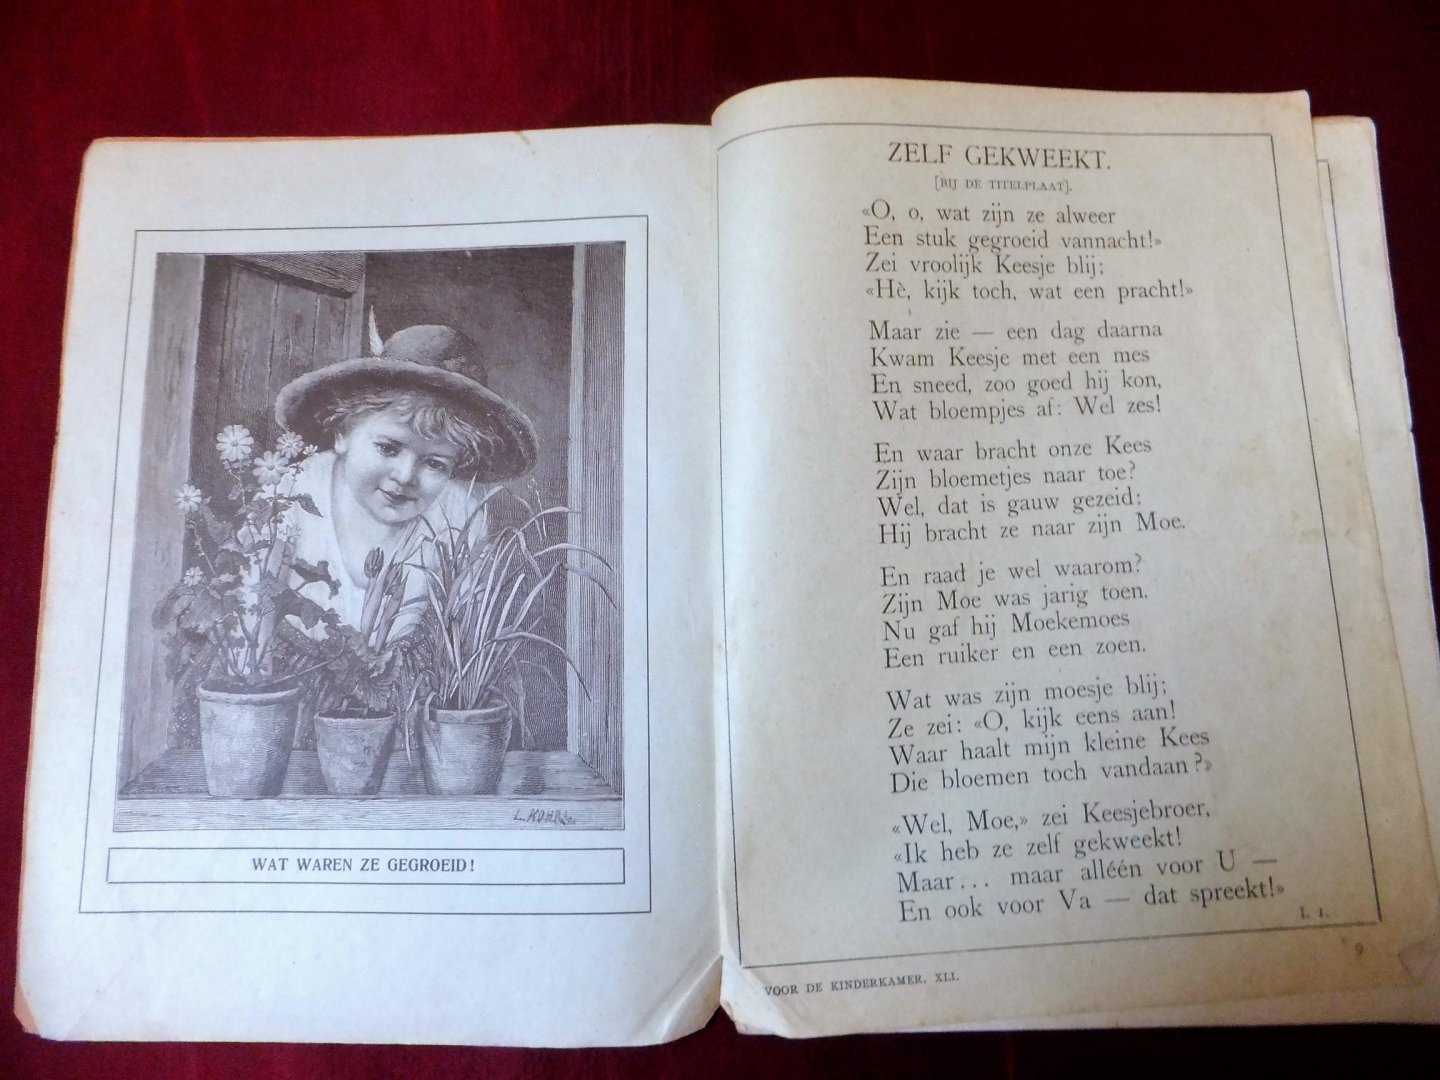 L. KOHR
WAT WAREN ZE GEGROEID!
ZELF GEKWEEKT.
[BIJ DE TITELPLAAT].
«O, o, wat zijn ze alweer
Een stuk gegroeid vannacht!»
Zei vroolijk Keesje blij;
«Hè, kijk toch, wat een pracht!»
Maar zie — een dag daarna
Kwam Keesje met een mes
En sneed, zoo goed hij kon,
Wat bloempjes af: Wel zes!
En waar bracht onze Kees
Zijn bloemetjes naar toe?
Wel, dat is gauw gezeid:
Hij bracht ze naar zijn Moe.
En raad je wel waarom?
Zijn Moe was jarig toen.
Nu gaf hij Moekemoes
Een ruiker en een zoen.
Wat was zijn moesje blij;
Ze zei: «O, kijk eens aan!
Waar haalt mijn kleine Kees
Die bloemen toch vandaan?»
«Wel, Moe,» zei Keesjebroer,
«Ik heb ze zelf gekweekt!
Maar... maar alléén voor U —
En ook voor Va — dat spreekt!»
VOOR DE KINDERKAMER. XLI.
9